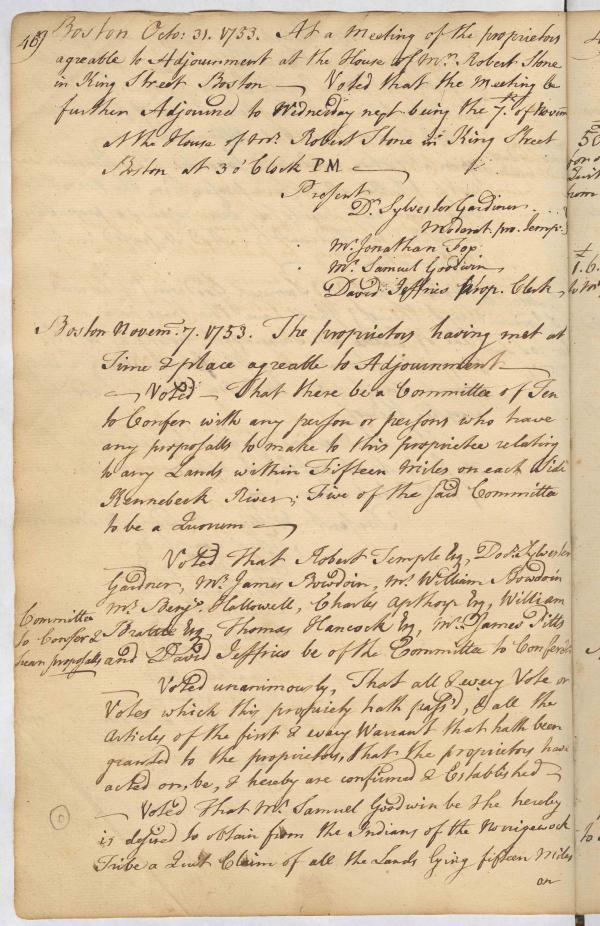 46
Boston Octo: 31. 1753. At a Meeting of the proprietors
agreable to Adjournment at the House of Mr. Robert Stone
in King Street Boston — Voted that the Meeting be
further Adjourned to Wednesday next being the 7th. of Novem
at the House of Mr. Robert Stone in King Street
Boston at 3 o'Clock PM —
Present
Dr. Sylvester Gardiner
Moderat. pro. Temp:
Mr. Jonathan Fox
Mr. Samuel Goodwin
David Jeffries Prop. Clerk
Boston Novem. 7. 1753. The proprietors having met at
Time & place agreable to Adjournment —
— Voted — That there be a Committee of Ten
to Confer with any person or persons who have
any proposalls to make to this proprietee relating
to any Lands within Fifteen Miles on each Side
Kennebeck River; Five of the said Committee
to be a Quorum —
Voted That Robert Temple Esq, Doctr. Sylvester
Gardner, Mr. James Bowdoin, Mr. William Bowdoin
Mr. Benja. Hallowell, Charles Apthorp Esq, William
Brattle Esq, Thomas Hancock Esq, Mr. James Pitts
and David Jeffries be of the Committee to Confer &c
Committee
to Confer &
hear proposalls
— Voted unanimously, That all & every Vote or
Votes which this propriety hath pass'd, & all the
Articles of the first & every Warrant that hath been
granted to the proprietors, that the proprietors have
acted on, be, & hereby are confirmed & Established —
— Voted That Mr. Samuel Goodwin be & he hereby
is desired to obtain from the Indians of the Norrigewock
Tribe a Quit Claim of all the Lands lying fifteen Miles
on